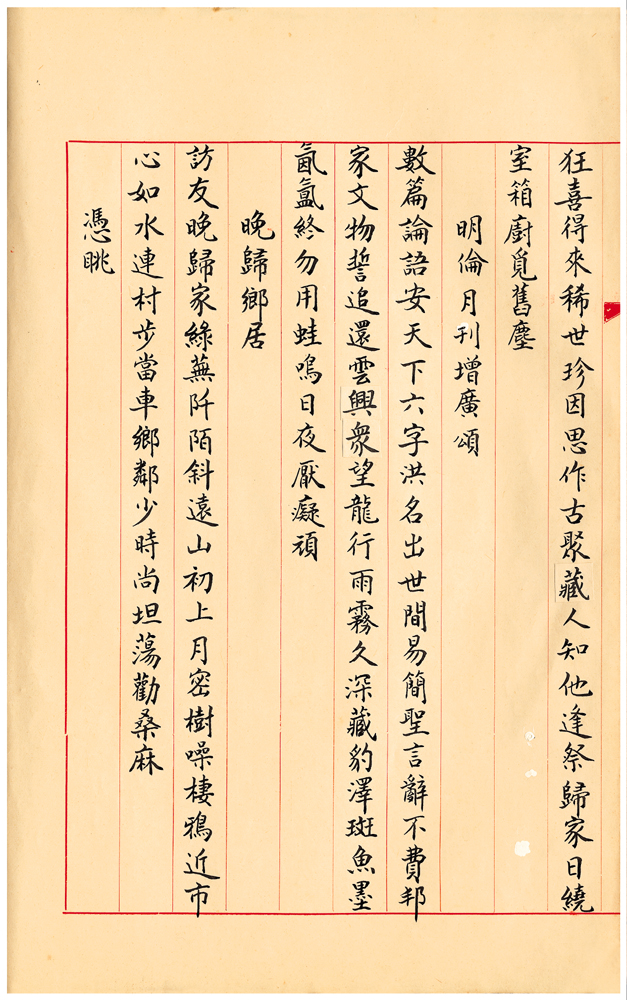 狂喜得來稀世珍因思作古聚藏人知他逢祭歸家日繞
室箱廚覓舊塵
明倫月刊增廣頌
數篇論語安天下六字洪名出世間易簡聖言辭不費邦
家文物誓追還雲興衆望龍行雨霧久深藏豹澤斑魚墨
氤氳終勿用蛙鳴日夜厭癡頑
晚歸鄉居
訪友晚歸家綠蕪阡陌斜遠山初上月密樹噪棲鴉近市
心如水連村步當車鄉鄰少時尚坦蕩勸桑麻
憑眺